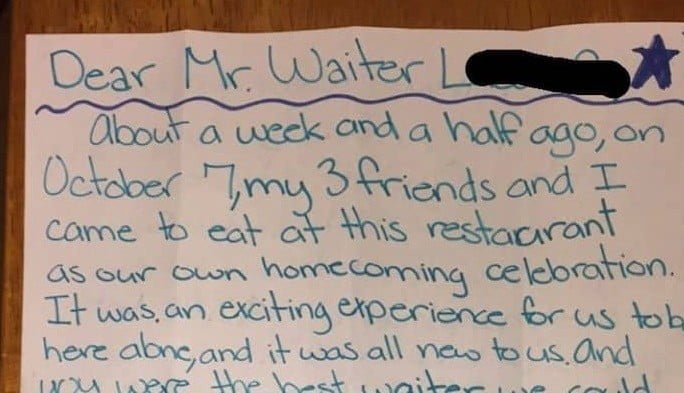 Dear Mr. Waiter L
About a week and a half ago, on
October 7, my 3 friends and I
came to eat at this restaurant
as our own homecoming celebration.
It was an exciting experience for us to b
here alone, and it was all new to us. And
you were the best waiter we could